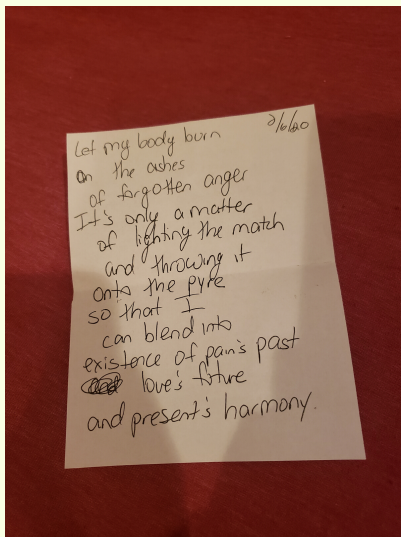 2/6/20
Let my body burn
on the ashes
of forgotten anger
It's only a matter
of lighting the match
and throwing it
onto the pyre
so that I
can blend into
existence of pain's past
love's future
and present's harmony.